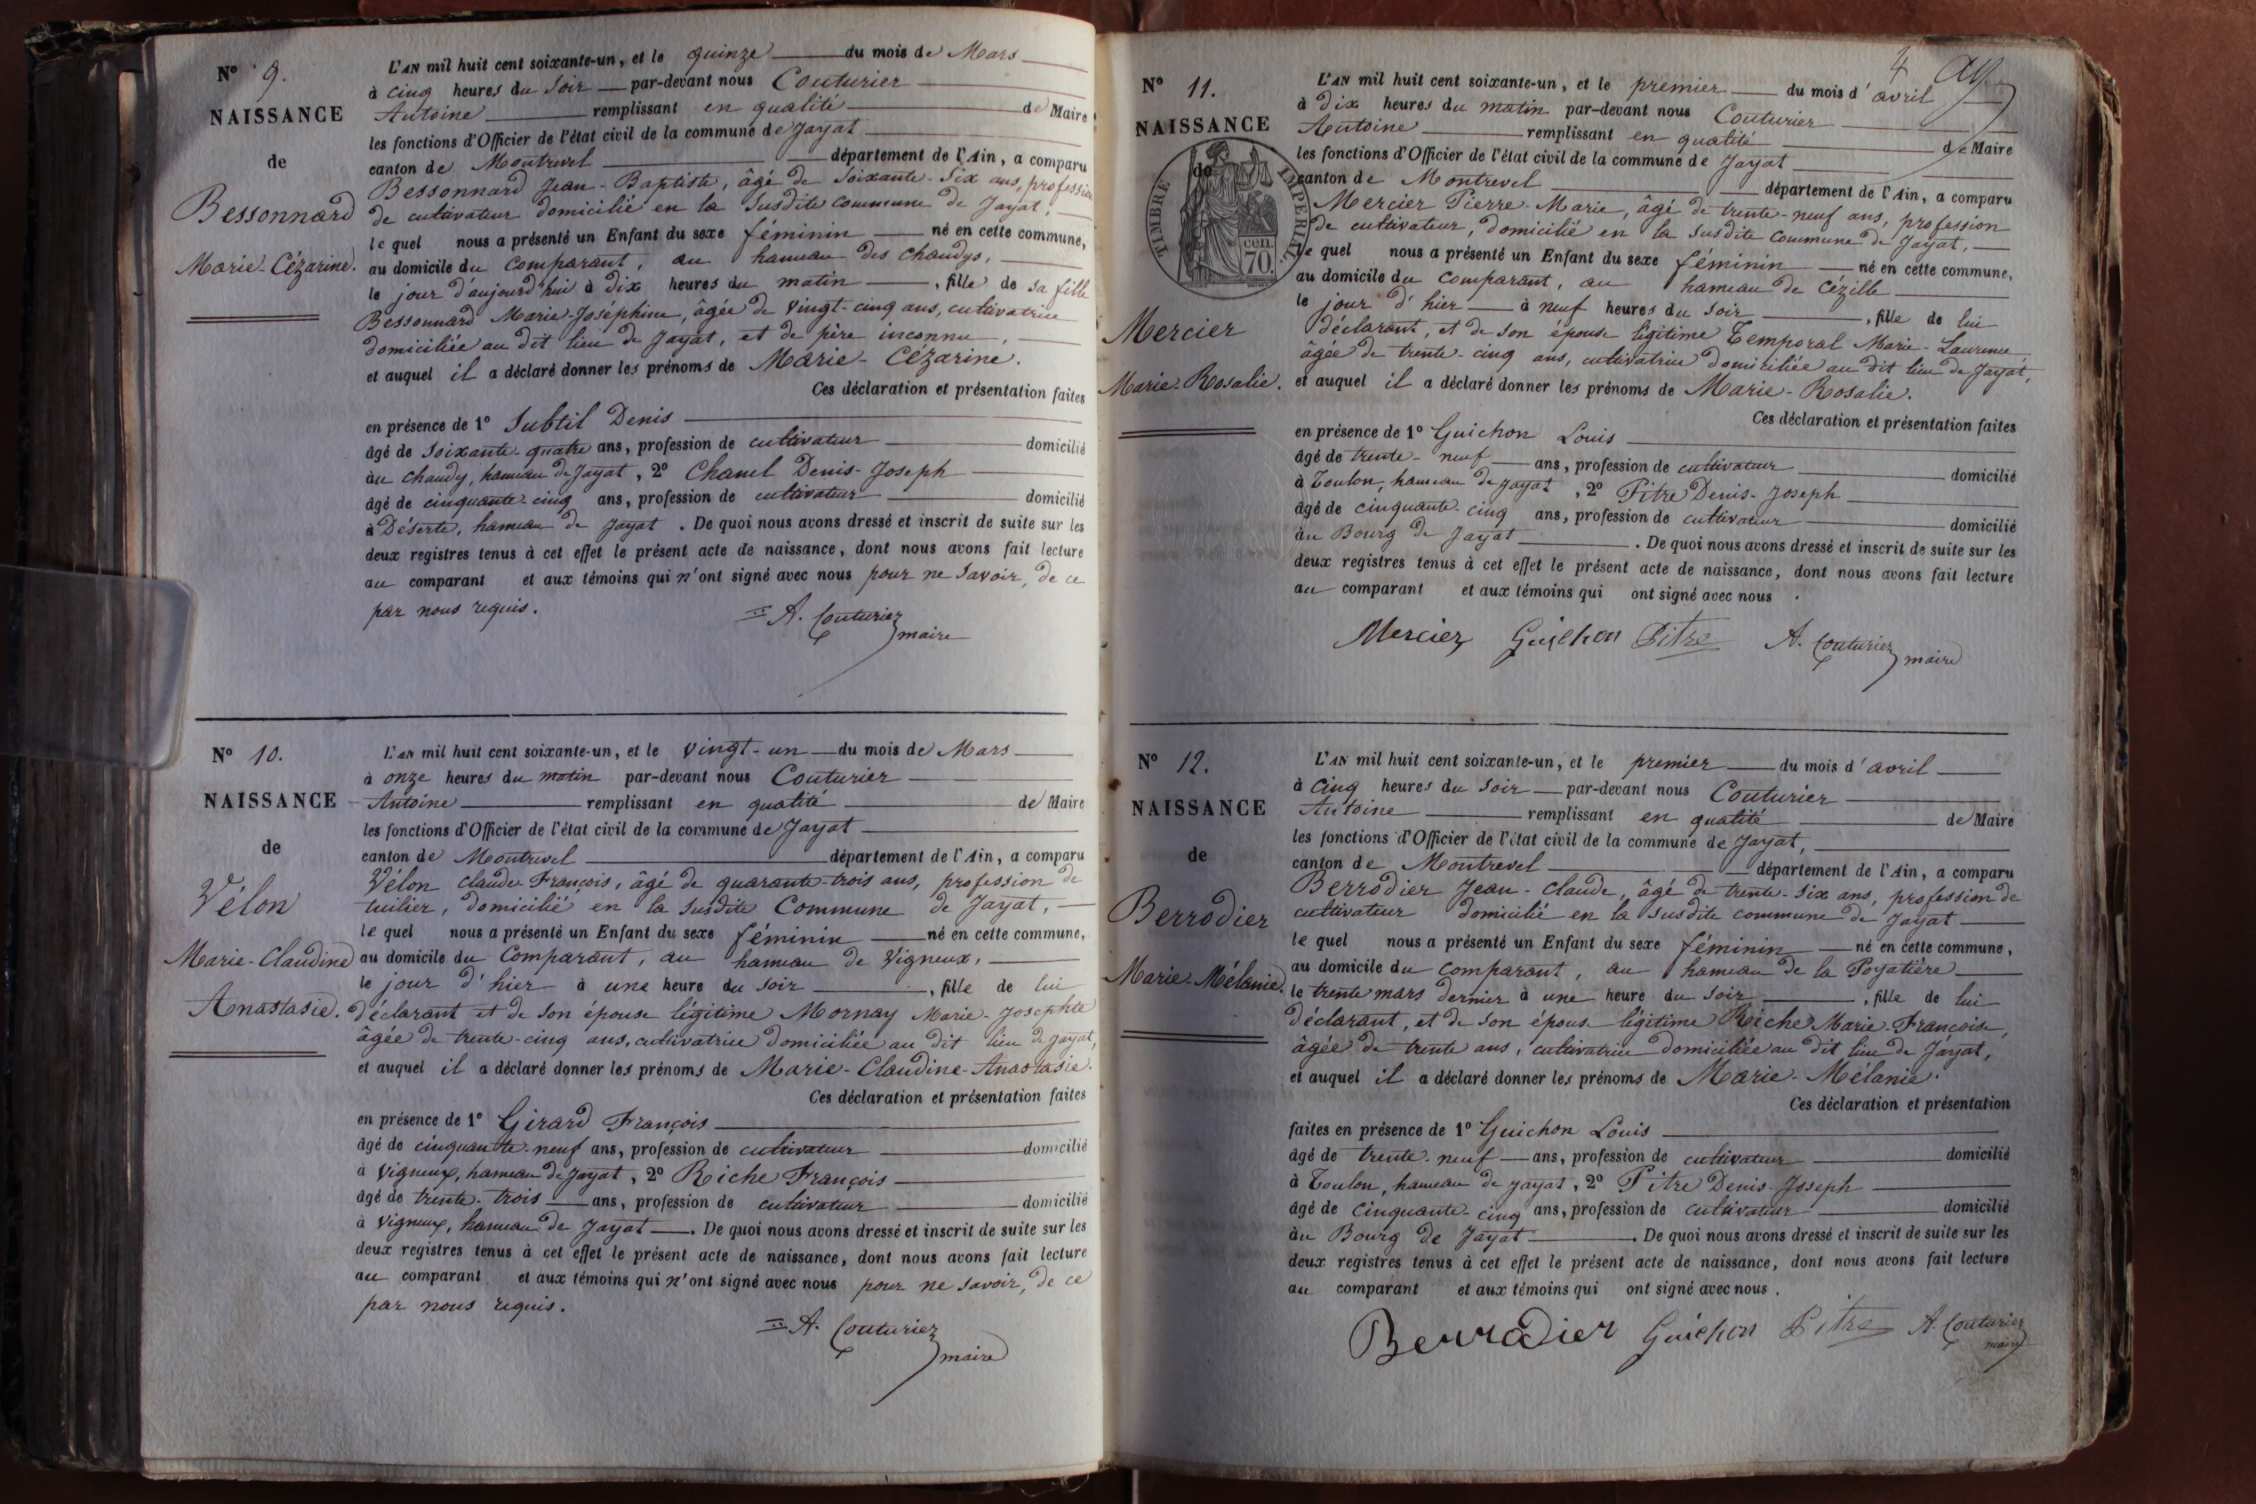 N° 9.
NAISSANCE
de
Bessonnard
Marie-Cézarine.
L'AN mil huit cent soixante-un, et le quinze du mois de Mars
à cinq heures du soir par-devant nous Couturier
Antoine remplissant en qualité de Maire
les fonctions d'Officier de l'état civil de la commune de Jayat
canton de Montrevel département de l'Ain, a comparu
Bessonnard Jean-Baptiste, âgé de soixante-six ans, profession
de cultivateur domicilié en la susdite commune de Jayat,
le quel nous a présenté un Enfant du sexe féminin né en cette commune,
au domicile du comparant, au hameau des chaudys,
le jour d'aujourd'hui à dix heures du matin, fille de sa fille
Bessonnard Marie-Joséphine, âgée de vingt-cinq ans, cultivatrice
domiciliée au dit lieu de Jayat, et de père inconnu,
et auquel il a déclaré donner les prénoms de Marie-Cézarine.
Ces déclaration et présentation faites
en présence de 1° Subtil Denis
âgé de soixante-quatre ans, profession de cultivateur domicilié
au chaudy, hameau de Jayat, 2° Chanel Denis-Joseph
âgé de cinquante-cinq ans, profession de cultivateur domicilié
à Déserte, hameau de Jayat. De quoi nous avons dressé et inscrit de suite sur les
deux registres tenus à cet effet le présent acte de naissance, dont nous avons fait lecture
au comparant et aux témoins qui n'ont signé avec nous pour ne savoir, de ce
par nous requis.
A. Couturier
maire
N° 10.
NAISSANCE
de
Vélon
Marie-Claudine
Anastasie.
L'AN mil huit cent soixante-un, et le vingt-un du mois de Mars
à onze heures du matin par-devant nous Couturier
Antoine remplissant en qualité de Maire
les fonctions d'Officier de l'état civil de la commune de Jayat
canton de Montrevel département de l'Ain, a comparu
Vélon claude François, âgé de quarante-trois ans, profession de
tuilier, domicilié en la susdite Commune de Jayat,
le quel nous a présenté un Enfant du sexe féminin né en cette commune,
au domicile du Comparant, au hameau de Vigneux,
le jour d'hier à une heure du soir, fille de lui
déclarant et de son épouse légitime Mornay Marie-Josephte
âgée de trente-cinq ans, cultivatrice domiciliée au dit lieu de Jayat,
et auquel il a déclaré donner les prénoms de Marie-Claudine-Anastasie.
Ces déclaration et présentation faites
en présence de 1° Girard François
âgé de cinquante-neuf ans, profession de cultivateur domicilié
à Vigneux, hameau de Jayat, 2° Riche François
âgé de trente-trois ans, profession de cultivateur domicilié
à Vigneux, hameau de Jayat. De quoi nous avons dressé et inscrit de suite sur les
deux registres tenus à cet effet le présent acte de naissance, dont nous avons fait lecture
au comparant et aux témoins qui n'ont signé avec nous pour ne savoir, de ce
par nous requis.
A. Couturier
maire
4
N° 11.
NAISSANCE
de
TIMBRE IMPERIAL
cen.
70.
Mercier
Marie-Rosalie.
L'AN mil huit cent soixante-un, et le premier du mois d'avril
à dix heures du matin par-devant nous Couturier
Antoine remplissant en qualité de Maire
les fonctions d'Officier de l'état civil de la commune de Jayat
canton de Montrevel département de l'Ain, a comparu
Mercier Pierre-Marie, âgé de trente-neuf ans, profession
de cultivateur, domicilié en la susdite commune de Jayat,
le quel nous a présenté un Enfant du sexe féminin né en cette commune,
au domicile du comparant, au hameau de Cézille
le jour d'hier à neuf heures du soir, fille de lui
déclarant, et de son épouse légitime Temporal Marie-Laurence
âgée de trente-cinq ans, cultivatrice domiciliée au dit lieu de Jayat,
et auquel il a déclaré donner les prénoms de Marie-Rosalie.
Ces déclaration et présentation faites
en présence de 1° Guichon Louis
âgé de trente-neuf ans, profession de cultivateur domicilié
à Toulon, hameau de Jayat, 2° Pitre Denis-Joseph
âgé de cinquante-cinq ans, profession de cultivateur domicilié
au Bourg de Jayat. De quoi nous avons dressé et inscrit de suite sur les
deux registres tenus à cet effet le présent acte de naissance, dont nous avons fait lecture
au comparant et aux témoins qui ont signé avec nous.
Mercier Guichon Pitre A. Couturier
maire
N° 12.
NAISSANCE
de
Berrodier
Marie-Mélanie.
L'AN mil huit cent soixante-un, et le premier du mois d'avril
à cinq heures du soir par-devant nous Couturier
Antoine remplissant en qualité de Maire
les fonctions d'Officier de l'état civil de la commune de Jayat,
canton de Montrevel département de l'Ain, a comparu
Berrodier Jean-Claude, âgé de trente-six ans, profession de
cultivateur domicilié en la susdite commune de Jayat
le quel nous a présenté un Enfant du sexe féminin né en cette commune,
au domicile du comparant, au hameau de la Poyatière
le trente mars dernier à une heure du soir, fille de lui
déclarant, et de son épouse légitime Riche Marie-Françoise,
âgée de trente ans, cultivatrice domiciliée au dit lieu de Jayat,
et auquel il a déclaré donner les prénoms de Marie-Mélanie.
Ces déclaration et présentation
faites en présence de 1° Guichon Louis
âgé de trente-neuf ans, profession de cultivateur domicilié
à Toulon, hameau de Jayat, 2° Pitre Denis-Joseph
âgé de cinquante-cinq ans, profession de cultivateur domicilié
au Bourg de Jayat. De quoi nous avons dressé et inscrit de suite sur les
deux registres tenus à cet effet le présent acte de naissance, dont nous avons fait lecture
au comparant et aux témoins qui ont signé avec nous.
Berrodier Guichon Pitre A. Couturier
maire